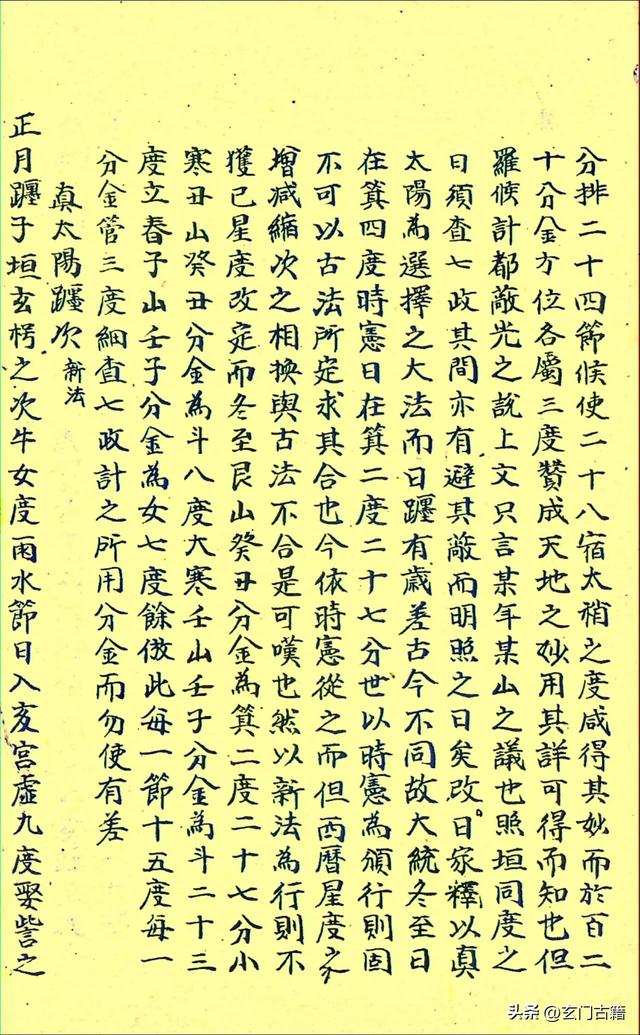 分排二十四節候使二十八宿太稍之度咸得其妙而於百二
十分金方位各屬三度贊成天地之妙用其詳可得而知也但
羅候計都蔽光之說上文只言某年某山之議也照垣同度之
日須查七政其間亦有避其蔽而明照之日矣改日家釋以真
太陽為選擇之大法而日躔有歲差古今不同故大統冬至日
在箕四度時憲日在箕二度二十七分世以時憲為頒行則固
不可以古法所定求其合也今依時憲從之而但西曆星度之
增減縮次之相換與古法不合是可嘆也然以新法為行則不
獲已星度改定而冬至艮山癸丑分金為箕二度二十七分小
寒丑山癸丑分金為斗八度大寒壬山壬子分金為斗二十三
度立春子山壬子分金為女七度餘倣此每一節十五度每一
分金管三度細查七政計之所用分金而勿使有差
真太陽躔次 新法
正月躔子垣玄枵之次牛女度雨水節日入亥宮虛九度娶訾之
头条 @玄门古籍